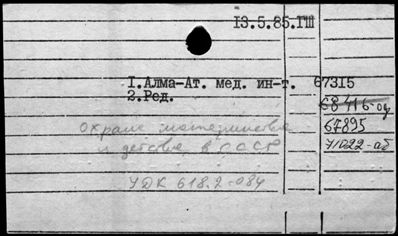 13.5.85.ГШ
1.Алма-Ат. мед. ин-т. 67315
2.Ред.
68416-од
Охрана материнства 67895
и детства в СССР 71022-аб
УДК 618.2-084